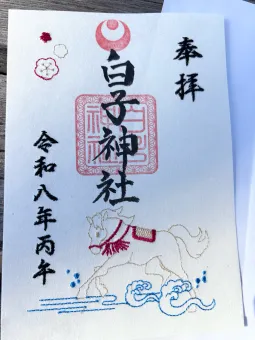 奉拝
白子神社
令和八年丙午